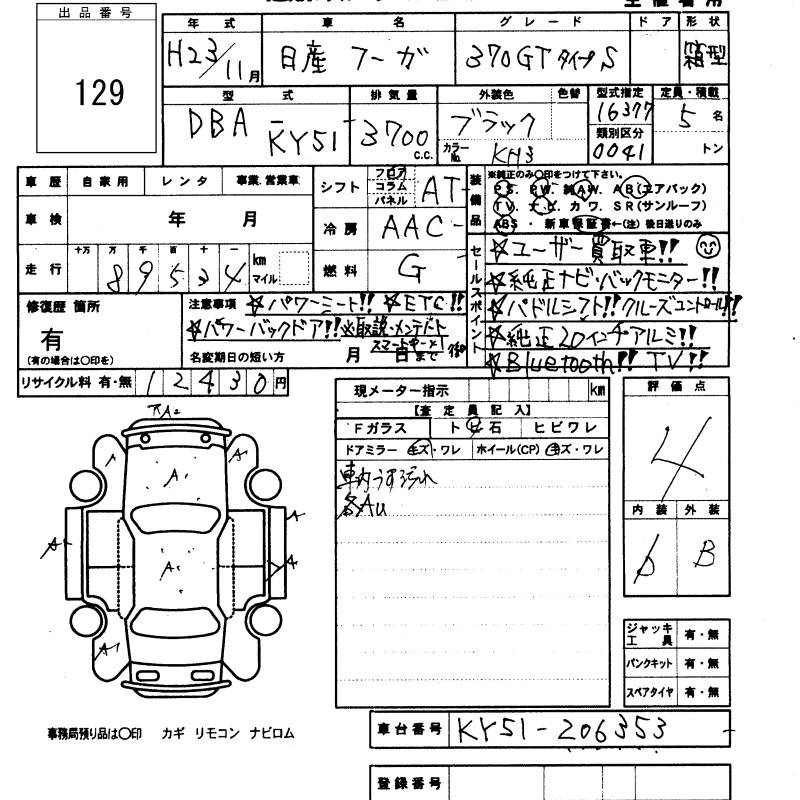 出品番号
129
年式 車名 グレード ドア 形状
H23/11月 日産 フーガ 370GTタイプS 箱型
型式 排気量 外装色 色替 型式指定 定員・積載
DBA KY51 3700 c.c. ブラック 16377 5名
カラーNo. KH3 類別区分 0041 トン
車歴 自家用 レンタ 事業.営業車
車検 年 月
走行 十万 万 千 百 十 一 km マイル
89534
シフト フロア コラム パネル AT
冷房 AAC
燃料 G
装備品
※純正のみ○印をつけて下さい。
P.S. P.W. 純A.W. A.B(エアバック)
T.V. ナ.ビ. カ.ワ. S.R(サンルーフ)
ABS・新車保証書←(注)後日送りのみ
セールスポイント
☆ユーザー買取車!!
☆純正ナビ・バックモニター!!
☆パドルシフト!!クルーズコントロール!!
☆純正20インチアルミ!!
☆Bluetooth!! TV!!
修復歴 箇所
有
(有の場合は○印を)
注意事項 ☆パワーシート!! ☆ETC!!
☆パワーバックドア!! 取説・メンテパート
スマートキー×1
名変期日の短い方 月 日まで
リサイクル料 有・無 12430円
現メーター指示 km
【査定員記入】
Fガラス ト ビ 石 ヒビワレ
ドアミラー キズ・ワレ ホイール(CP) キズ・ワレ
車内うす汚れ
各AU
評価点
4
内装 外装
B
A2
A
A
A1
A
A
A
A1
A1
ジャッキ工具 有・無
パンクキット 有・無
スペアタイヤ 有・無
事務局預り品は○印 カギ リモコン ナビロム
車台番号 KY51-206353
登録番号